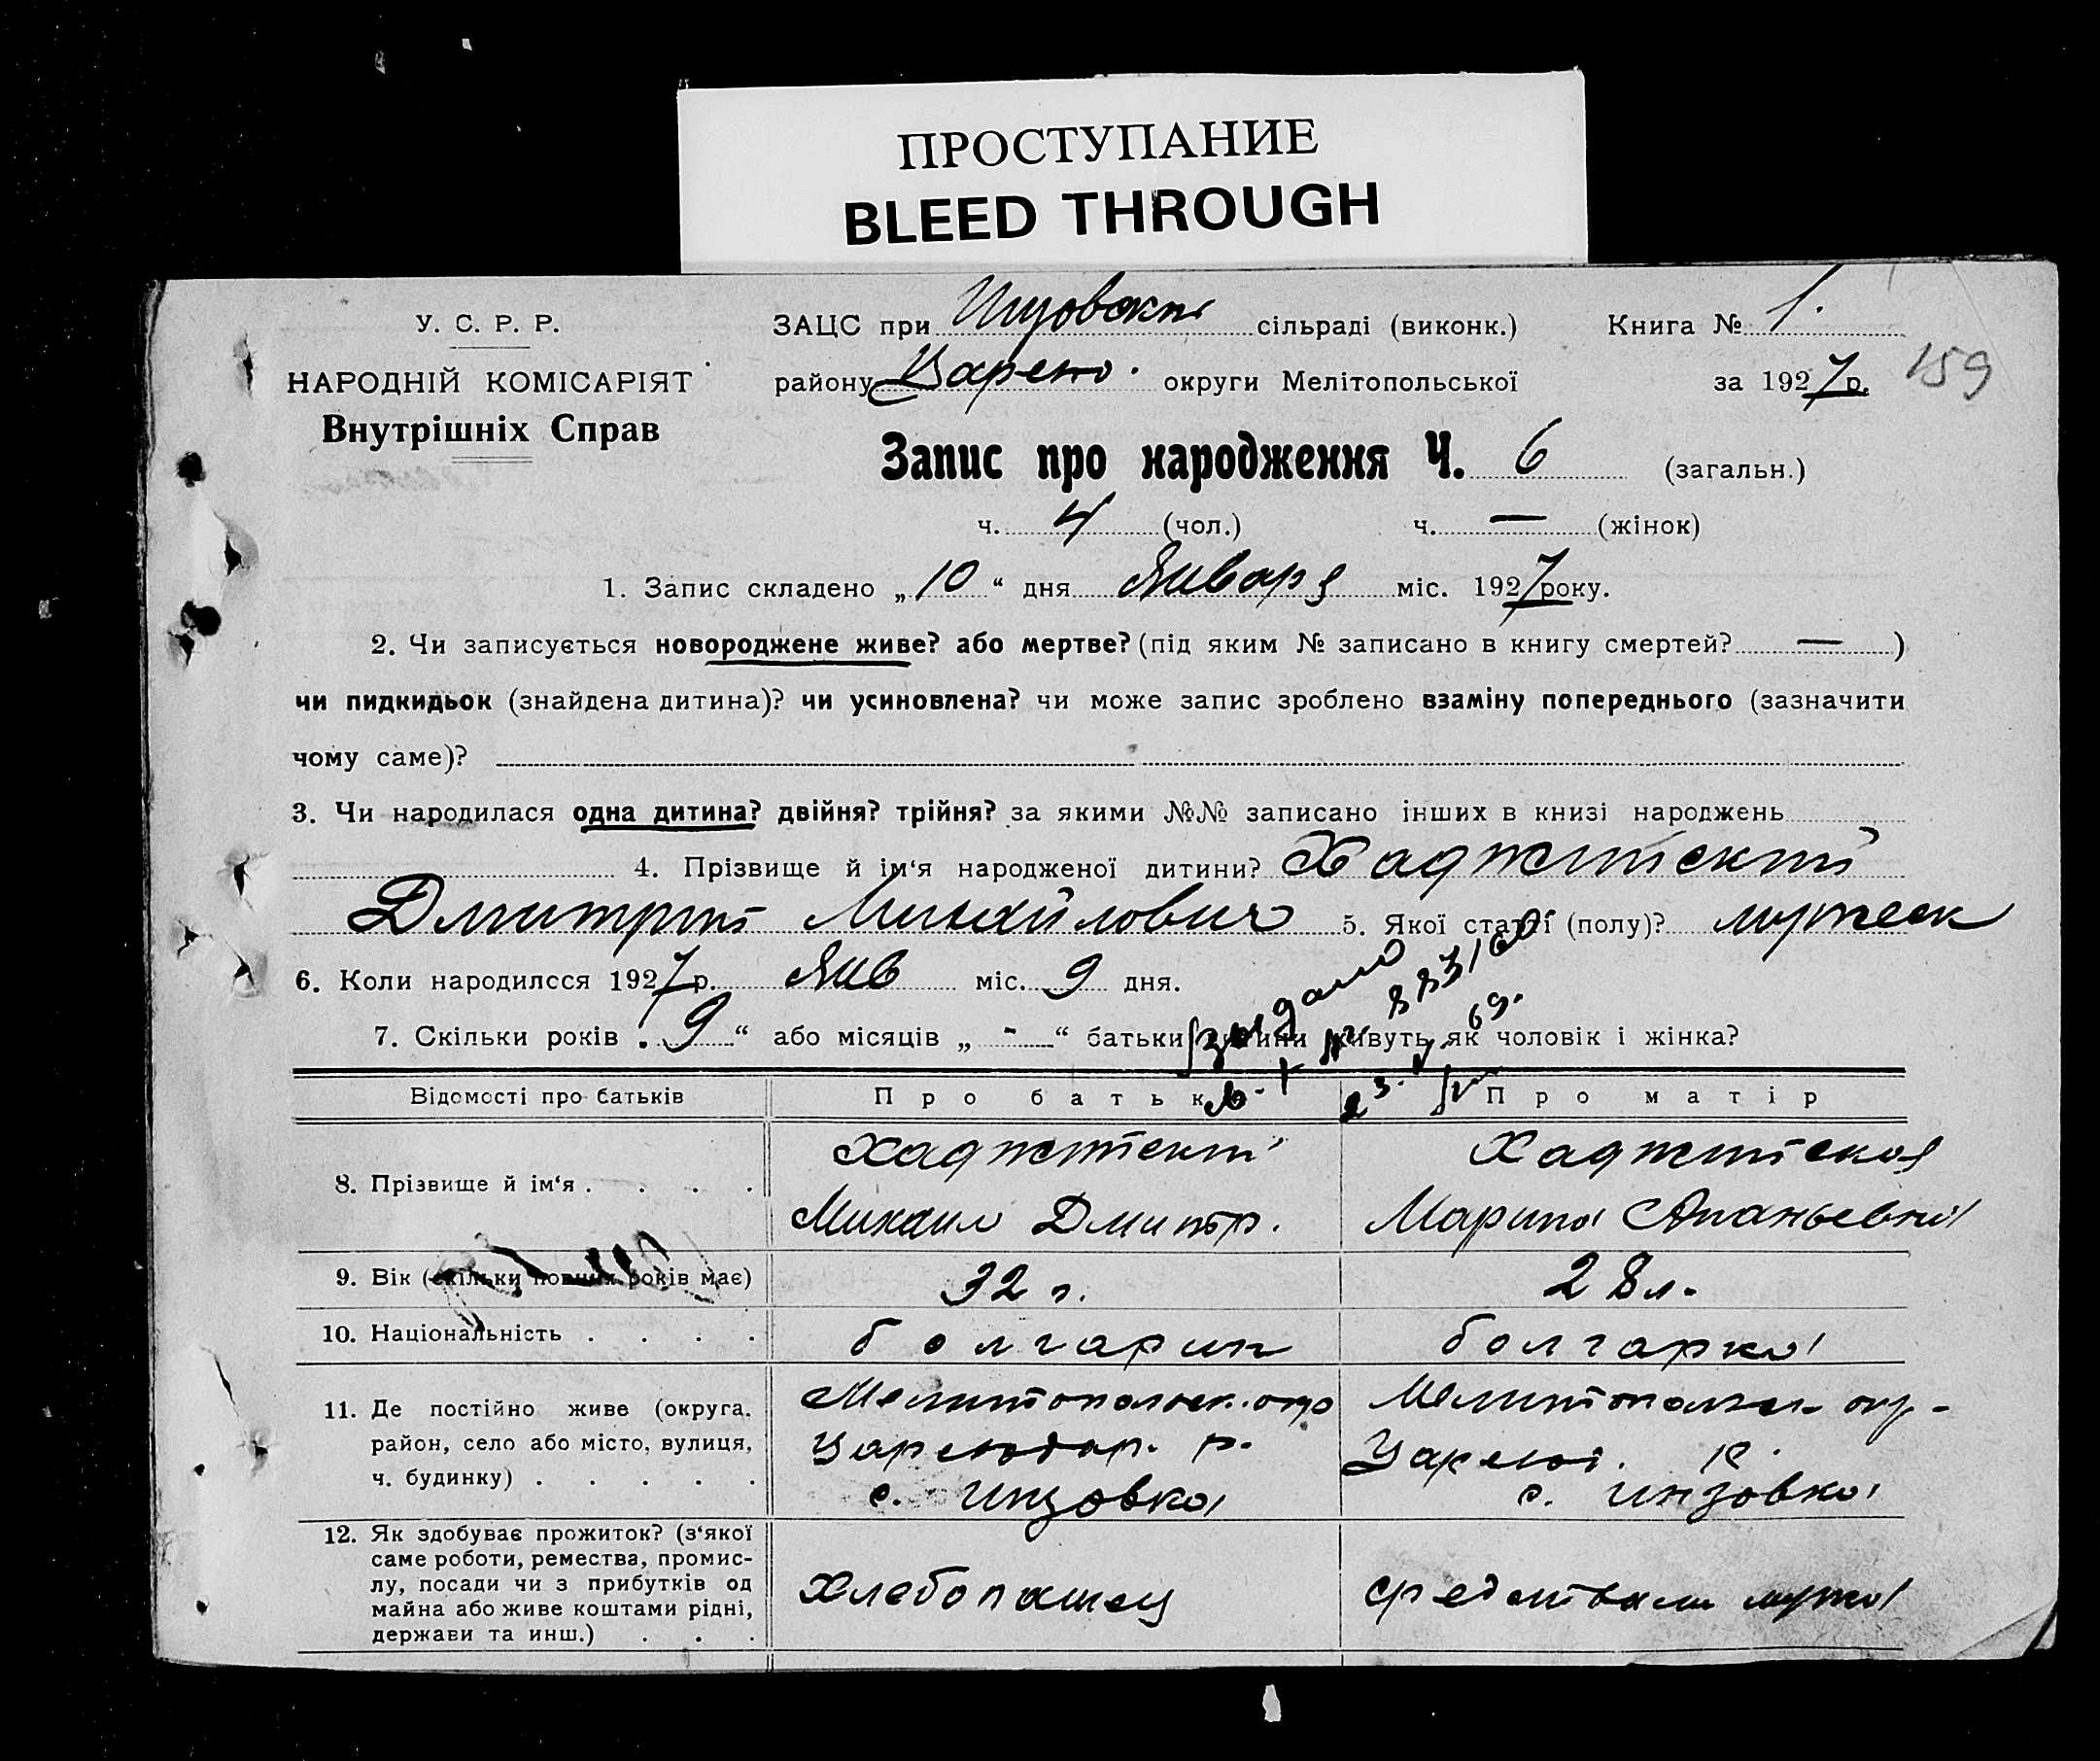 ПРОСТУПАНИЕ
BLEED THROUGH
У. С. Р. Р.
НАРОДНІЙ КОМІСАРІЯТ
Внутрішніх Справ
ЗАЦС при Инзовский сільраді (виконк.) Книга № 1.
району Царено. округи Мелітопольської за 1927 р. 159
Запис про народження Ч. 6 (загальн.)
ч. 4 (чол.) ч. — (жінок)
1. Запис складено „10“ дня Января міс. 1927 року.
2. Чи записується новороджене живе? або мертве? (під яким № записано в книгу смертей? — )
чи пидкидьок (знайдена дитина)? чи усиновлена? чи може запис зроблено взаміну попереднього (зазначити
чому саме)?
3. Чи народилася одна дитина? двійня? трійня? за якими №№ записано інших в книзі народжень
4. Прізвище й ім‘я народженої дитини? Хаджитский
Дмитрий Михайлович 5. Якої статті (полу)? мужеск
6. Коли народилося 1927 р. Янв міс. 9 дня.
7. Скільки років „9“ або місяців „-“ батьки дитини живуть як чоловік і жінка?
Відомості про батьків Про батька Про матір
8. Прізвище й ім‘я . . . .
Хаджитский
Михаил Дмитр.
Хаджитская
Марина Ананьевна
9. Вік (скільки повних років має) 32 г. 28 л.
10. Національність . . . . болгарин болгарка
11. Де постійно живе (округа,
район, село або місто, вулиця,
ч. будинку) . . . . .
Мелитопольск. окр
Царенодар. р.
с. Инзовка
Мелитопольск окр-
Царенод. р.
с. Инзовка
12. Як здобуває прожиток? (з‘якої
саме роботи, ремества, промис-
лу, посади чи з прибутків од
майна або живе коштами рідні,
держави та инш.) . . .
Хлебопашец
средствами мужа